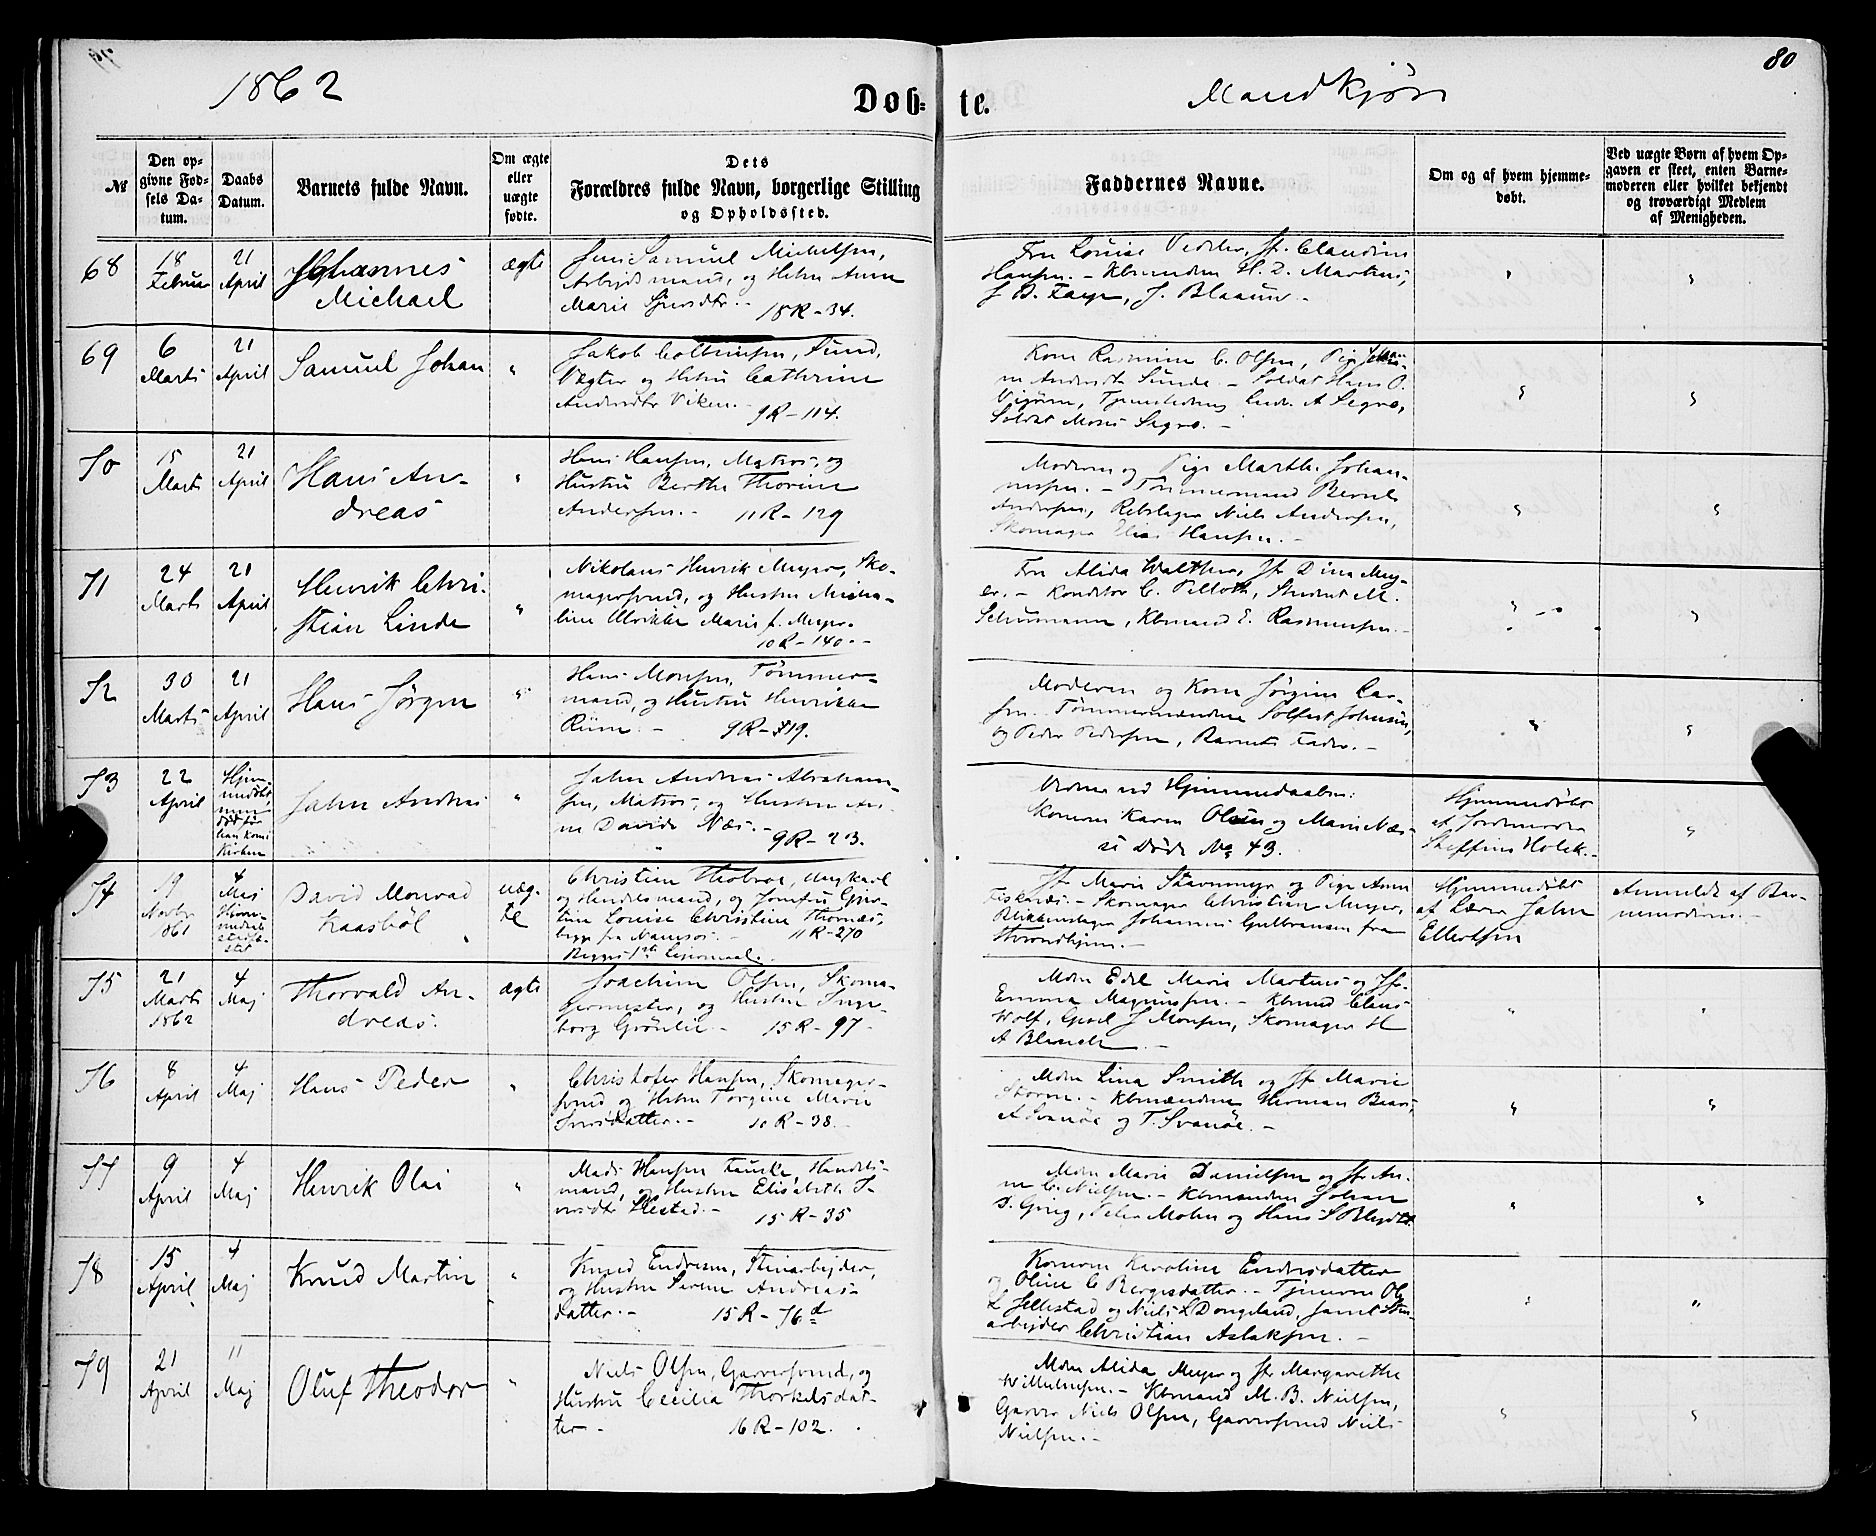 1862
Døb-
te.
Mandkjøn
80
№
Den op-
givne Fød-
sels Da-
tum.
Daabs
Datum.
Barnets fulde Navn.
Om ægte
eller
uægte
fødte.
Dets
Forældres fulde Navn, borgerlige Stilling
og Opholdssted.
Faddernes Navne.
Om og af hvem hjemme-
døbt.
Ved uægte Børn af hvem Op-
gaven er skeet, enten Barne-
moderen eller hvilket bekjendt
og troværdigt Medlem
af Menigheden.
68
18
Februar
21
April
Johannes
Michael
ægte
Jens Samuel Michelsen,
Arbejdsmand, og Hstru Anne
Marie
18R-34.
Fru Louise
Hansen. - Kbmændene H. D. Martens,
J. D. Faye, J. Blaauw -
69
6
Marts
21
April
Samuel Johan
"
Jakob
Vægter og Hstru Cathrine
Andersdtr Viken.-
9R-114.
Kone Rasmine C. Olsen, Pige Johan-
ne Andersdtr Sunde. - Soldat Hans O.
A Segro,
Soldat Mons Segro. -
70
15
Marts
21
April
Hans An-
dreas
"
Hans Hansen, Matros, og
Hustru Berthe Thorine
Andersen.- 11R-129
Moderen og Pige Marthe Johan-
nesen. - Tømmermand Bernt
Andersen, Rebslager Niels Andersen,
Skomager Elias Hansen. -
71
24
Marts
21
April
Henrik Chri-
stian Linde
"
Nikolaus Henrik Meyer, Sko-
magersvend, og Hustru Micha-
line Ulrikke Marie f. Meyer.
10R-140.-
Fru Alida Walther, Jf. Dina Mey-
er. - Konditor C. Student M.
Schumann, Kbmand E. Rasmussen. -
72
30
Marts
21
April
Hans Jørgen
"
Hans Monsen, Tømmer-
mand, og Hustru Henrikke
9R-719.
Moderen og Kone Jørgine Lar-
sen. Tømmermændene Johnsen,
og Peder Pedersen, Barnets Fader. -
73
22
April
Hjem-
medøbt,
men
død før
han kom i
Kirken
Jahn Andreas
"
Jahn Andreas Abraham-
sen, Matros, og Hustru An-
ne Davida Næs. -
9R-23.
Vidner ved Hjemmedaaben:
Konerne Karen Olsen og Marie Næs
se Døde No 43.
Hjemmedøbt
af Jordemoder
Steffine Holck.-
74
19
Novbr
1861
4
Maj
Hjem-
medaab
stadfæ-
stet
David Monrad
Kaasbøl
uæg-
te
Christian Ungkarl
og Handelsmand, og Jomfru
Louise Christine Thornæs,
begge fra Namsos. - 11R-270
Begges 1ste Lejermaal.
Jf. Marie og Pige Anne
Fisknæs. - Skomager Christian Meyer,
Blikkenslager Johannes Gulbransen fra
Throndhjem. -
Hjemmedøbt
af Lærer Jahn
Ellertsen
Anmeldt af Bar-
nemoderen. -
75
21
Marts
1862
4
Maj
Thorvald An-
dreas.
ægte
Joachim Olsen, Skoma-
germester, og Hustru Inge-
borg Grønlie - 15R-97-
Mdm Edel Maria Martens og Jf.
Emma Magnussen. - Kbmd Claus
Wolf, J Monsen, Skomager H
A Blanck. -
76
8
April
4
Maj
Hans Peder
"
Christofer Hansen, Skomager-
svend og Hstru Torgine Marie
Iversdatter. - 10R-38.
Mdm Lina Smith og Jf Marie
Storm. - Kbmændene Herman
A Svanøe og T. Svanøe. -
77
9
April
4
Maj
Henrik Olai
"
Mads Hansen Handels-
mand, og Hustru Elisabeth I-
versdtr -
15R-35
Mdm Marie Danielsen og Jf. An-
ne C. Nielsen. - Kbmændene Johan
D. Grieg, Peter Mohn og Hans S Blydt.
78
15
April
4
Maj
Knud Martin
"
Knud Endresen, Stenarbejder,
og Hustru Serene Andreas-
datter. - 15R-76d
Konerne Karoline Endresdatter
og Oline C Børgesdatter. - Tjenerne Ole
L Jellestad og Niels L Dongeland, samt Sten-
arbejder Christian Aslaksen. -
79
21
April
11
Maj
Oluf Theodor
"
Niels Olsen, Garversvend, og
Hustru Cecilia Thorkelsdat-
ter - 16R-102.
Mdm Alida Meyer og Jf Margarethe
Willumsen. - Kbmand M. B. Nielsen,
Garver Niels Olsen, Garversvend Niels
Nielsen. -